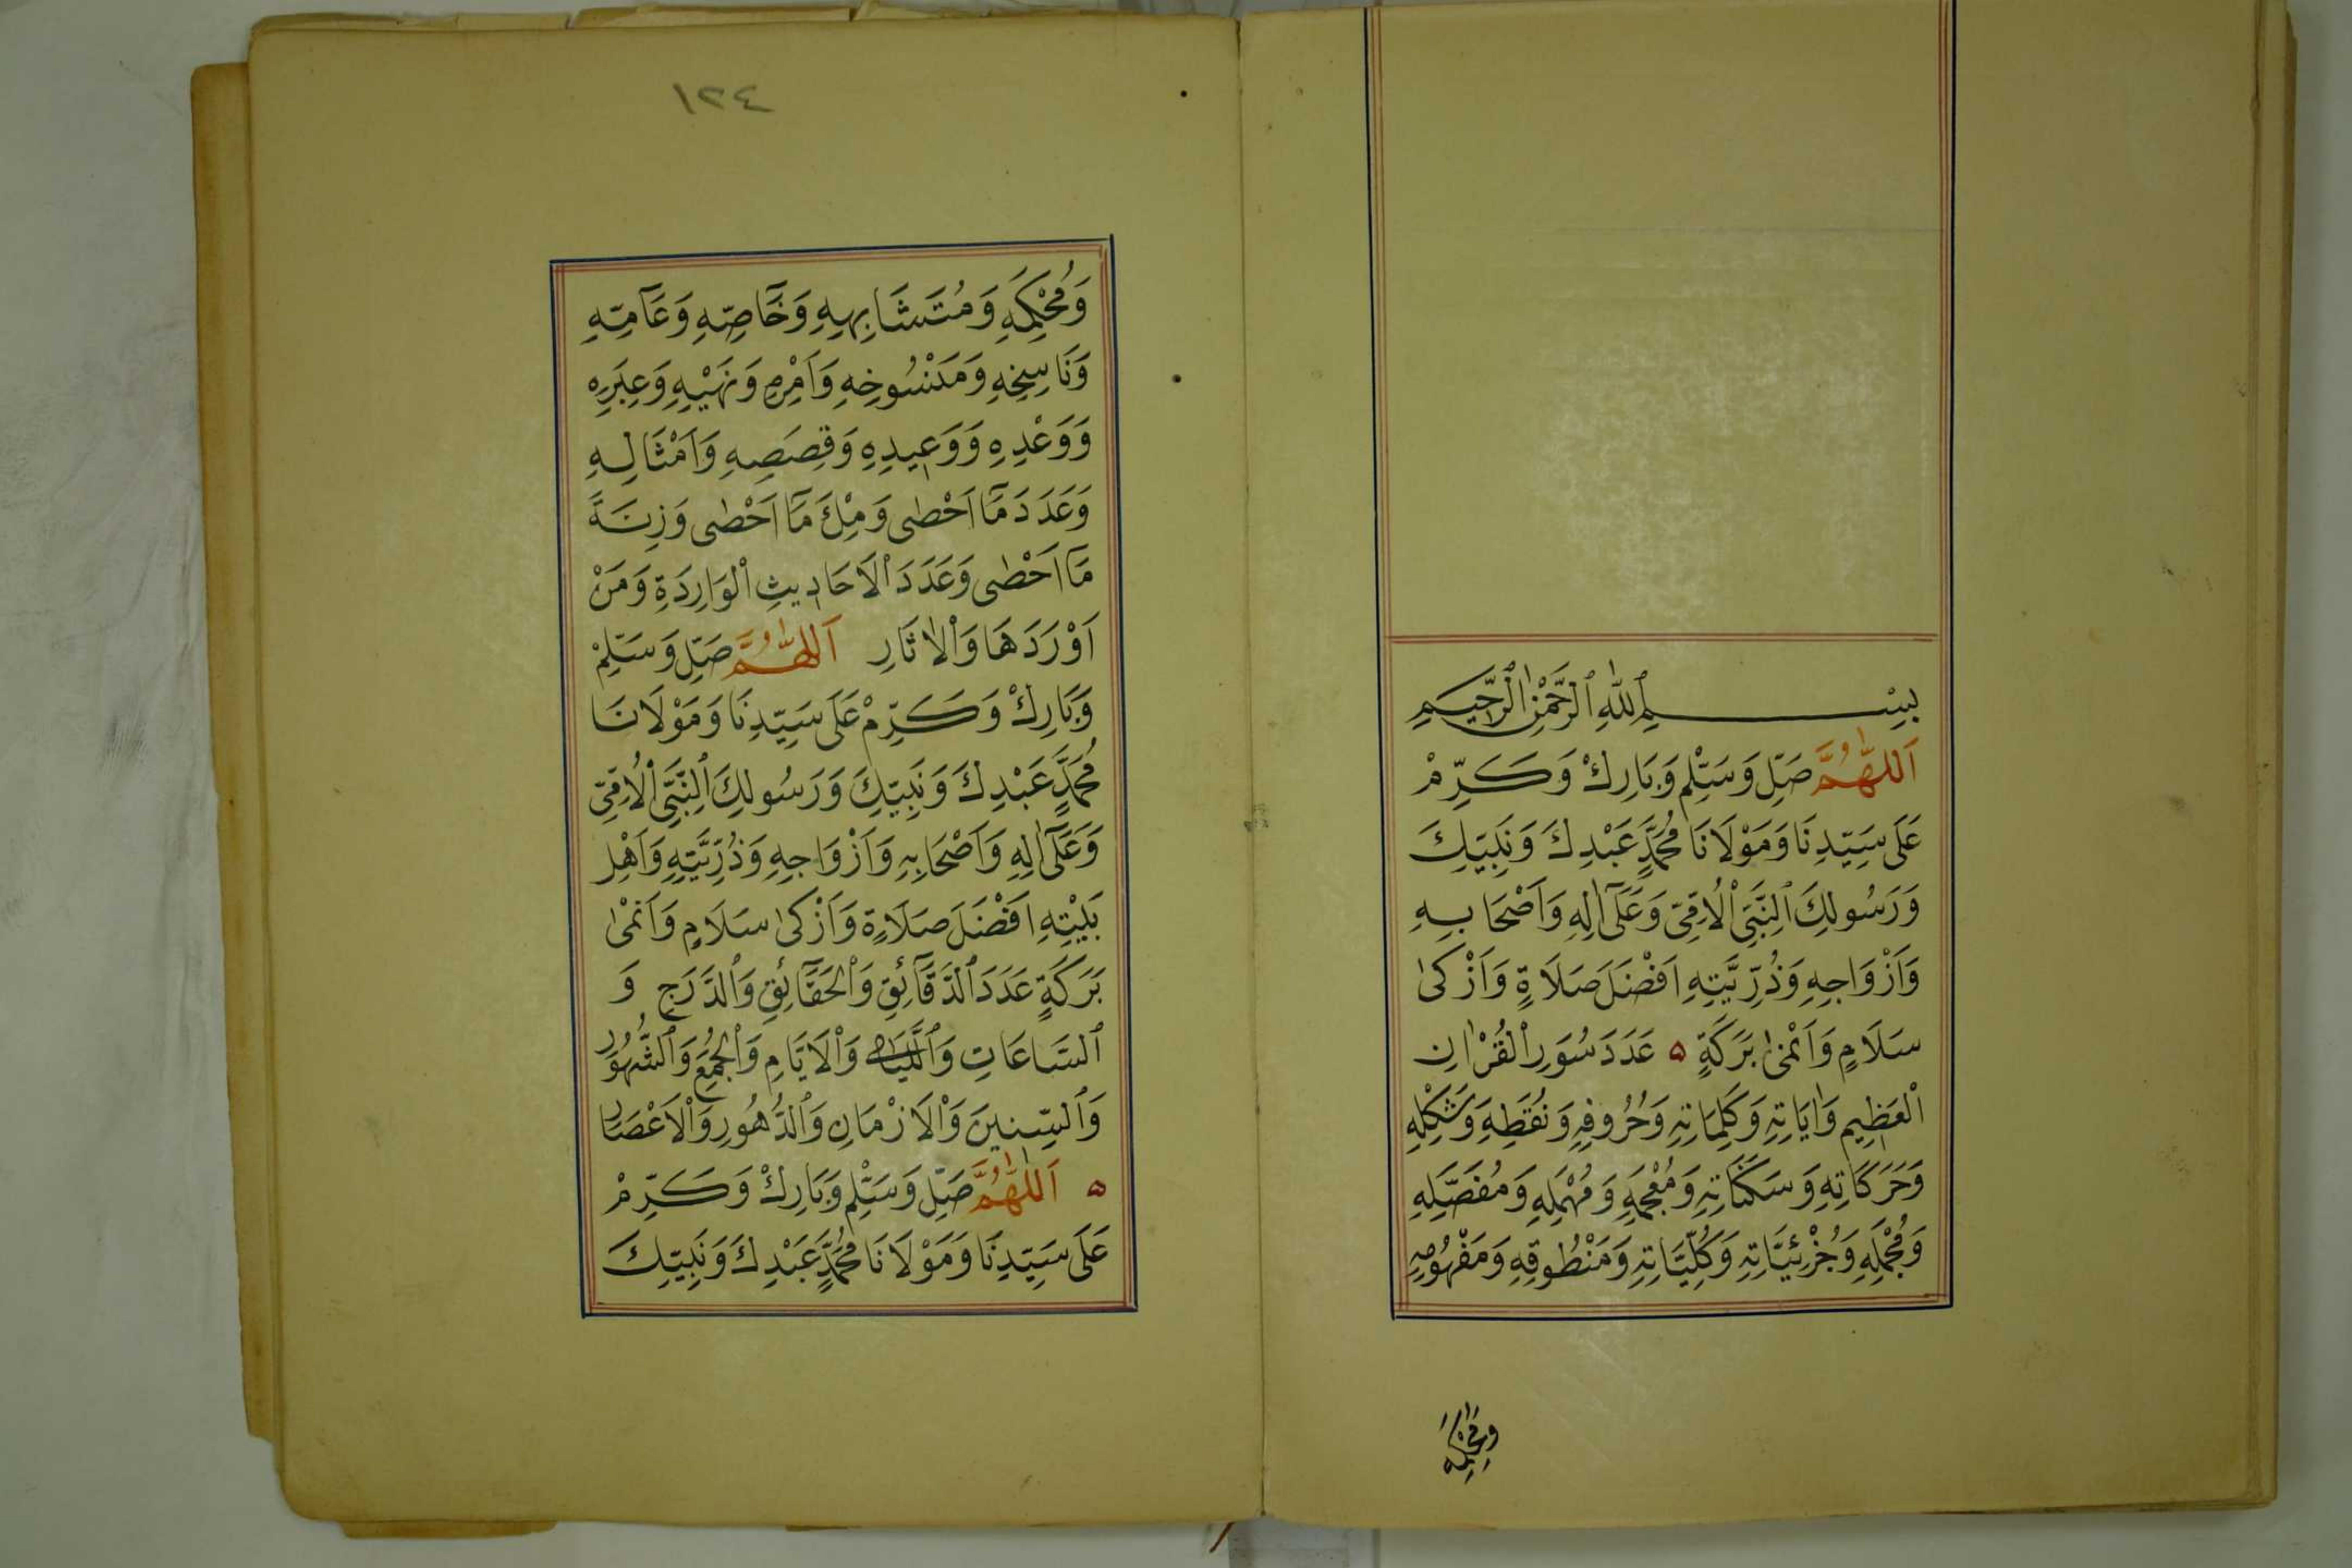 بِسْمِ ٱللّٰهِ ٱلرَّحْمٰنِ ٱلرَّحِيمِ
اَللّٰهُمَّ صَلِّ وَسَلِّمْ وَبَارِكْ وَكَرِّمْ
عَلَى سَيِّدِنَا وَمَوْلَانَا مُحَمَّدٍ عَبْدِكَ وَنَبِيِّكَ
وَرَسُولِكَ ٱلنَّبِيِّ ٱلْاُمِّيِّ وَعَلَىٰٓ اٰلِهِ وَاَصْحَابِهِ
وَاَزْوَاجِهِ وَذُرِّيَّتِهِ اَفْضَلَ صَلَاةٍ وَاَزْكىٰ
سَلَامٍ وَاَنْمىٰ بَرَكَةٍ ه عَدَدَ سُوَرِ ٱلْقُرْاٰنِ
ٱلْعَظِيمِ وَاٰيَاتِهِ وَكَلِمَاتِهِ وَحُرُوفِهِ وَنُقَطِهِ وَشَكْلِهِ
وَحَرَكَاتِهِ وَسَكَنَاتِهِ وَمُعْجَمِهِ وَمُهْمَلِهِ وَمُفَصَّلِهِ
وَمُجْمَلِهِ وَجُزْئِيَّاتِهِ وَكُلِّيَّاتِهِ وَمَنْطُوقِهِ وَمَفْهُومِهِ
وَمُحْكَمِهِ
١٢٤
وَمُحْكَمِهِ وَمُتَشَابِهِهِ وَخَآصِّهِ وَعَآمِّهِ
وَنَاسِخِهِ وَمَنْسُوخِهِ وَاَمْرِهِ وَنَهْيِهِ وَعِبَرِهِ
وَوَعْدِهِ وَوَعِيدِهِ وَقِصَصِهِ وَاَمْثَالِهِ
وَعَدَدَ مَآ اَحْطٰى وَمِلْءَ مَآ اَحْطٰى وَزِنَةَ
مَآ اَحْطٰى وَعَدَدَ ٱلْاَحَادِيثِ ٱلْوَارِدَةِ وَمَنْ
اَوْرَدَهَا وَٱلْاٰثَارِ اَللّٰهُمَّ صَلِّ وَسَلِّمْ
وَبَارِكْ وَكَرِّمْ عَلَى سَيِّدِنَا وَمَوْلَانَا
مُحَمَّدٍ عَبْدِكَ وَنَبِيِّكَ وَرَسُولِكَ ٱلنَّبِيِّ ٱلْاُمِّيِّ
وَعَلَىٰٓ اٰلِهِ وَاَصْحَابِهِ وَاَزْوَاجِهِ وَذُرِّيَّتِهِ وَاَهْلِ
بَيْتِهِ اَفْضَلَ صَلَاةٍ وَاَزْكىٰ سَلَامٍ وَاَنْمىٰ
بَرَكَةٍ عَدَدَ ٱلدَّقَآئِقِ وَٱلْحَقَآئِقِ وَٱلدَّرَجِ وَ
ٱلسَّاعَاتِ وَٱللَّيَالِى وَٱلْاَيَّامِ وَٱلْجُمَعِ وَٱلشُّهُورِ
وَٱلسِّنِينَ وَٱلْاَزْمَانِ وَٱلدُّهُورِ وَٱلْاَعْصَارِ
ه اَللّٰهُمَّ صَلِّ وَسَلِّمْ وَبَارِكْ وَكَرِّمْ
عَلَى سَيِّدِنَا وَمَوْلَانَا مُحَمَّدٍ عَبْدِكَ وَنَبِيِّكَ